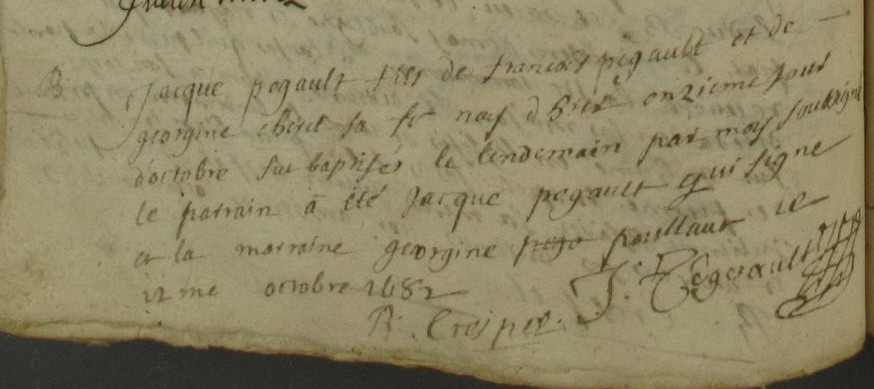 B
Jacque pegault fils de francois pegault et de
georgine cheret sa fe nay d hier onzieme jour
d'octobre fut baptisé le lendemain par moy soubsigné
le parrain a été Jacque pegault qui signe
et la marraine georgine paillaut ce
12 me octobre 1682
J. Pegeault
R. Crespel.